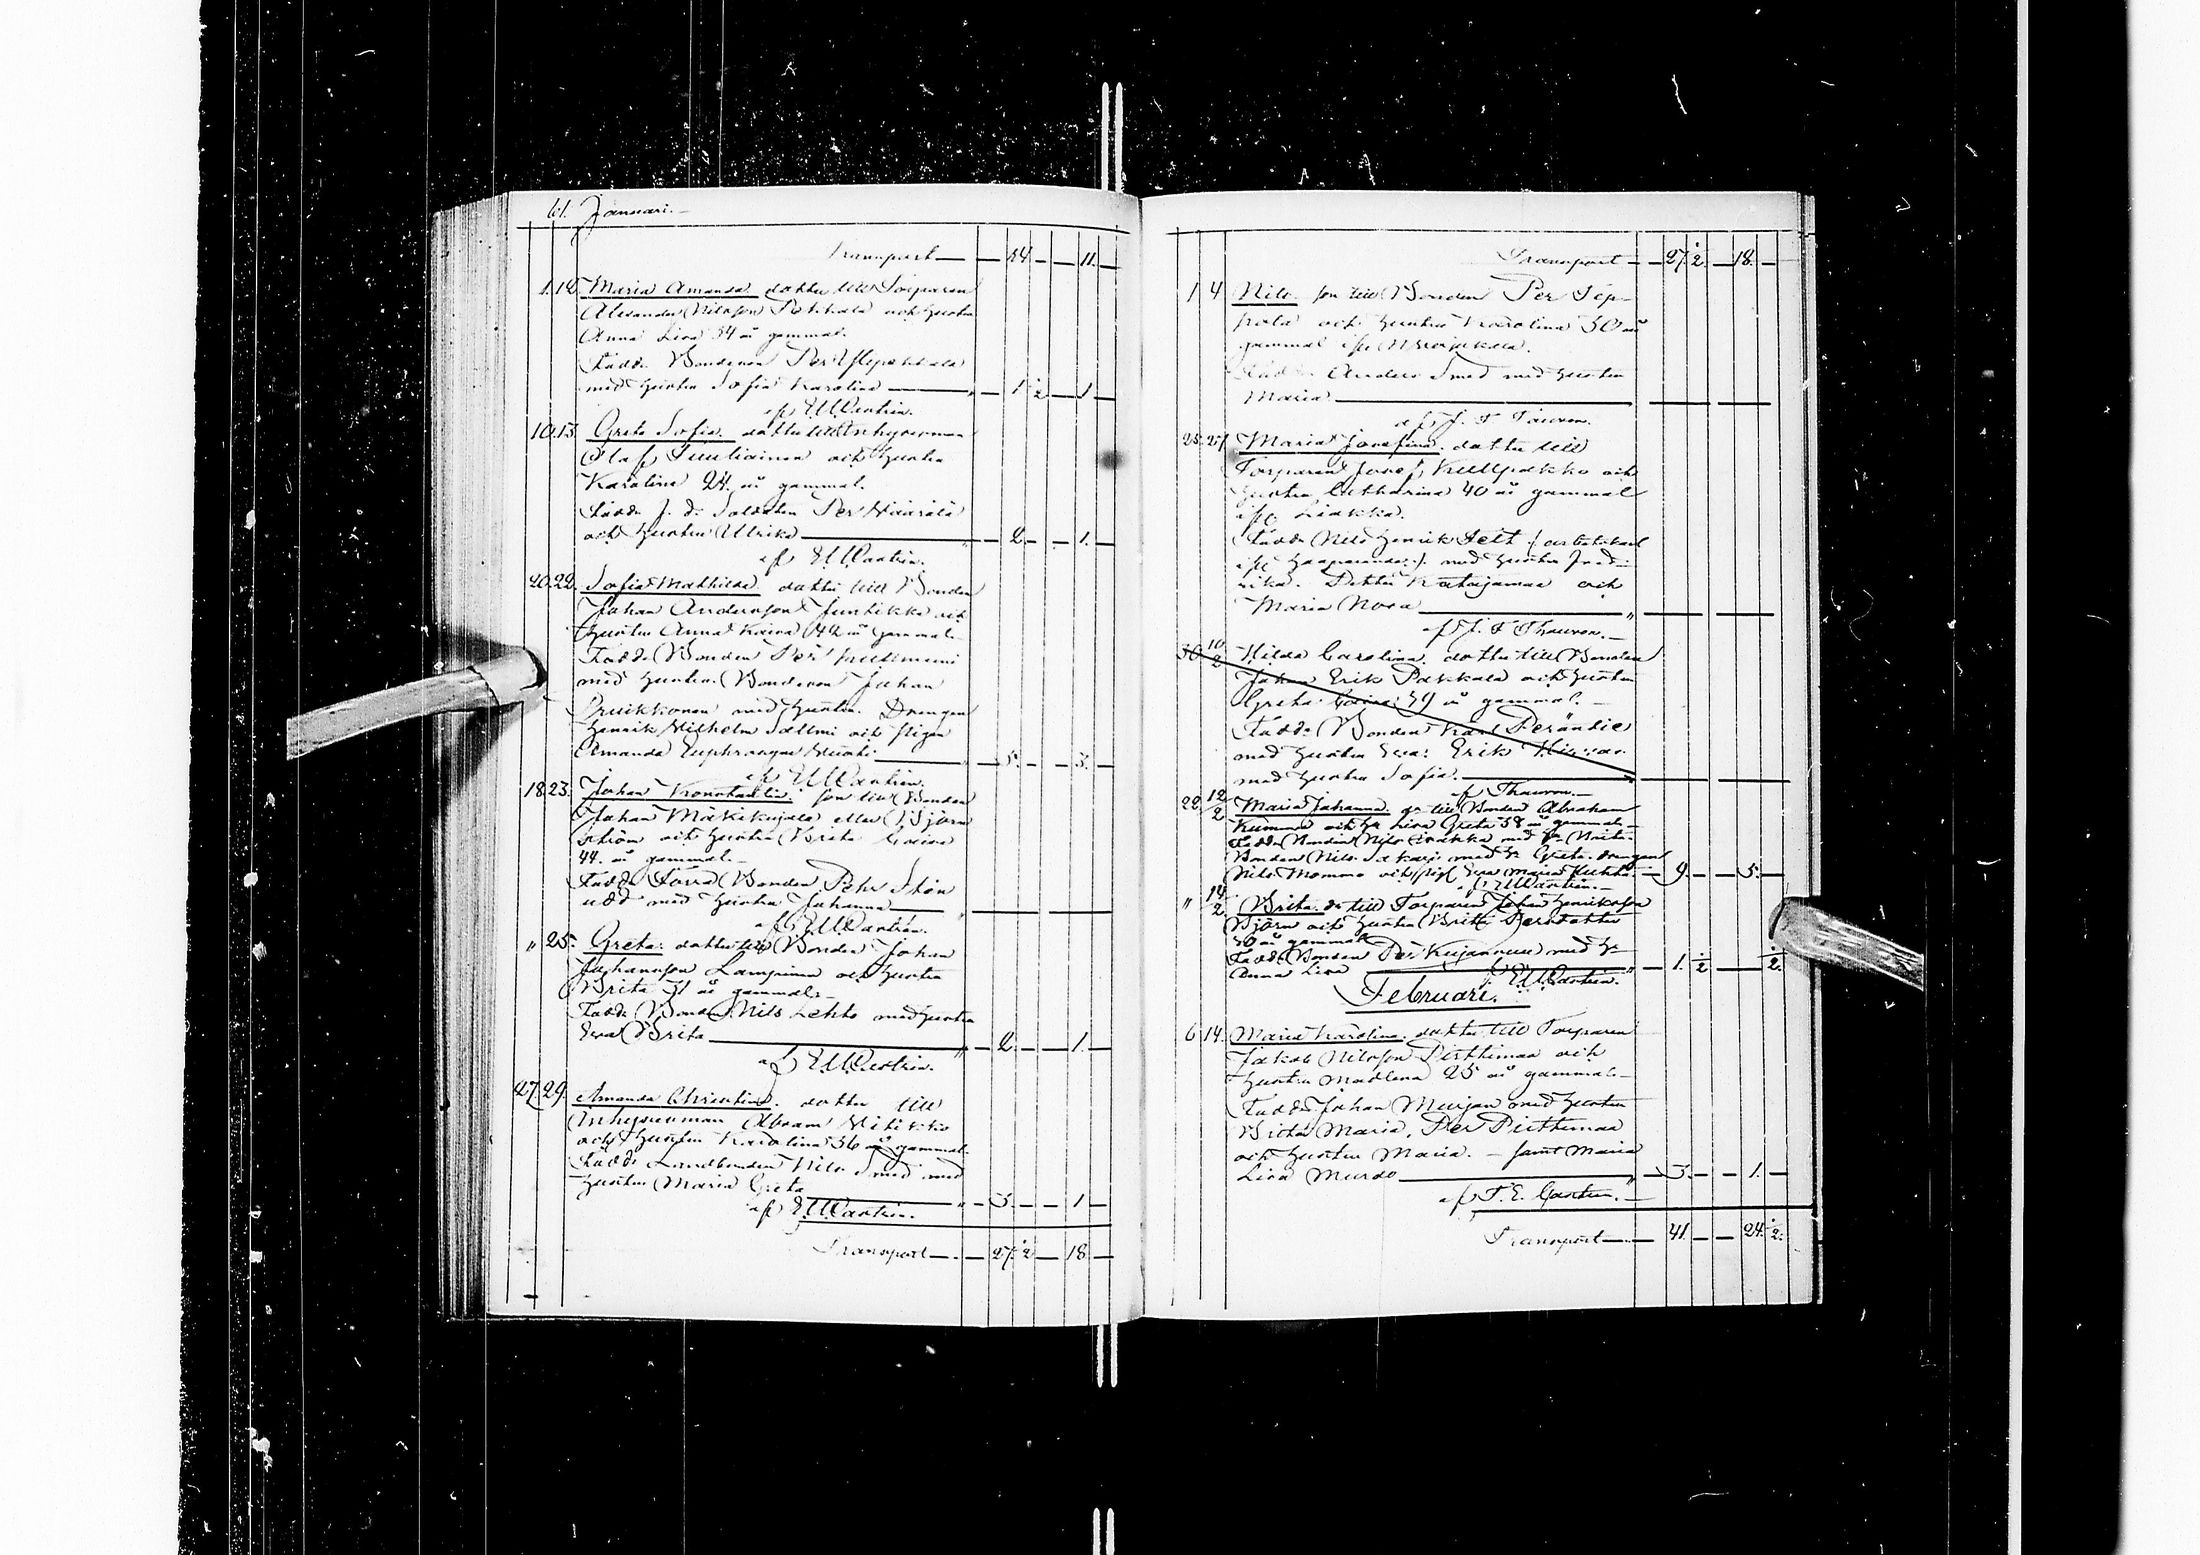 61. Januari.
Transport — 14 — 11. —
1. 12. Maria Amanda. dotter till Torparen
Alexander Nilsson Pekkala och hustru
Anna Lisa 34 år gammal.
Fadd: Bonderna Per
med hustru Sofia Karolina — 1 1/2 — 1 —
af E. W. Castrén.
10. 13. Greta Sofia. dotter till Inhysesman
Olaf Tuuliainen och hustru
Karolina 24 år gammal.
Fadd: f. d. Soldaten Per Määrälä
och hustru Ulrika — 2. — 1. —
af E W Castrén.
20. 22. Sofia Mathilda. dotter till Bonden
Johan Andersson Juntikka och
hustru Anna Kaisa 42 år gammal.
Fadd: Bonden Per
med hustru. Bonderna Johan
Bruikkonen med hustru. Drengen
Henrik Wilhelm Salmi och pigan
Amanda — 5. — 3. —
af E W Castrén.
18. 23. Johan Konstantin. son till Bonden
Johan Mäkikujala eller Björn
ström och hustru Brita Caisa
44. år gammal.
Fadd: Förra Bonden Pehr
med hustru Johanna —
af E. W. Castrén.
" 25. Greta. dotter till Bonden Johan
Johansson Lampinen och hustru
Brita 31 år gammal.
Fadd: Bonden Nils Lehto med hustru
Eva Brita — 2. — 1. —
af E W Castrén.
27. 29. Amanda Christina. dotter till
Inhysesman Abram
och hustru Karolina 36 år gammal.
Fadd: Landbonden Nils Smed med
hustru Maria Greta — 3. — 1 —
af E. W. Castrén.
Transport — 27. 1/2 — 18 —
Transport — 27. 1/2. — 18. —
1 4 Nils. son till Bonden Per Sep-
pala och hustru Karolina 30 år
gammal ifr.
Fadd: Anders Smed med hustru
Maria —
af J. F Thauvon.
25. 27. Maria Josefina. dotter till
Torparen Josef Kullpakko och
hustru Catharina 40 år gammal
ifr Liakka.
Fadd: Nils Henrik Felt /: arbetskarl
ifr Haaparanda :/ med hustru Fred-
rika. Petter Katajamaa och
Maria Nora —
af J. F Thauvon. —
30 10/2 Hilda Carolina. dotter till Bonden
Johan Erik Pakkala och hustru
Greta Caisa 39 år gammal. —
Fadd: Bonden Karl Peräntie
med hustru Eva: Erik
med hustru Sofia. —
af Thauvon. —
22. 12/2 Maria Johanna. dr till Bonden Abraham
Kumma och h. Lisa Greta 38 år gammal
Fadd: Bonden Nils Liakka med h. Brita.
Bonden Nils med h. Greta. drengen
Nils Mommo och pig. Eva Maria — 9. — 5. —
af E W Castrén. —
" 14/2 Brita. dr till Torparen Johan Henriksson
Björn och hustru Britta Persdotter
30 år gammal
Fadd: Bonden Per Kujanpää med h
Anna Lisa — 1. 1/2 — 1/2.
E. W. Castrén.
Februari.
6 14. Maria Karolina. dotter till Torparen
Jakob Nilsson Pirttimaa och
hustru Madlena 25 år gammal —
Fadd: Johan Marjan med hustru
Brita Maria, Per Pirttimaa
och hustru Maria. — samt Maria
Lisa Murdo — 3. — 1. —
af F. E. Castrén. —
Transport — 41. — 24. 1/2.